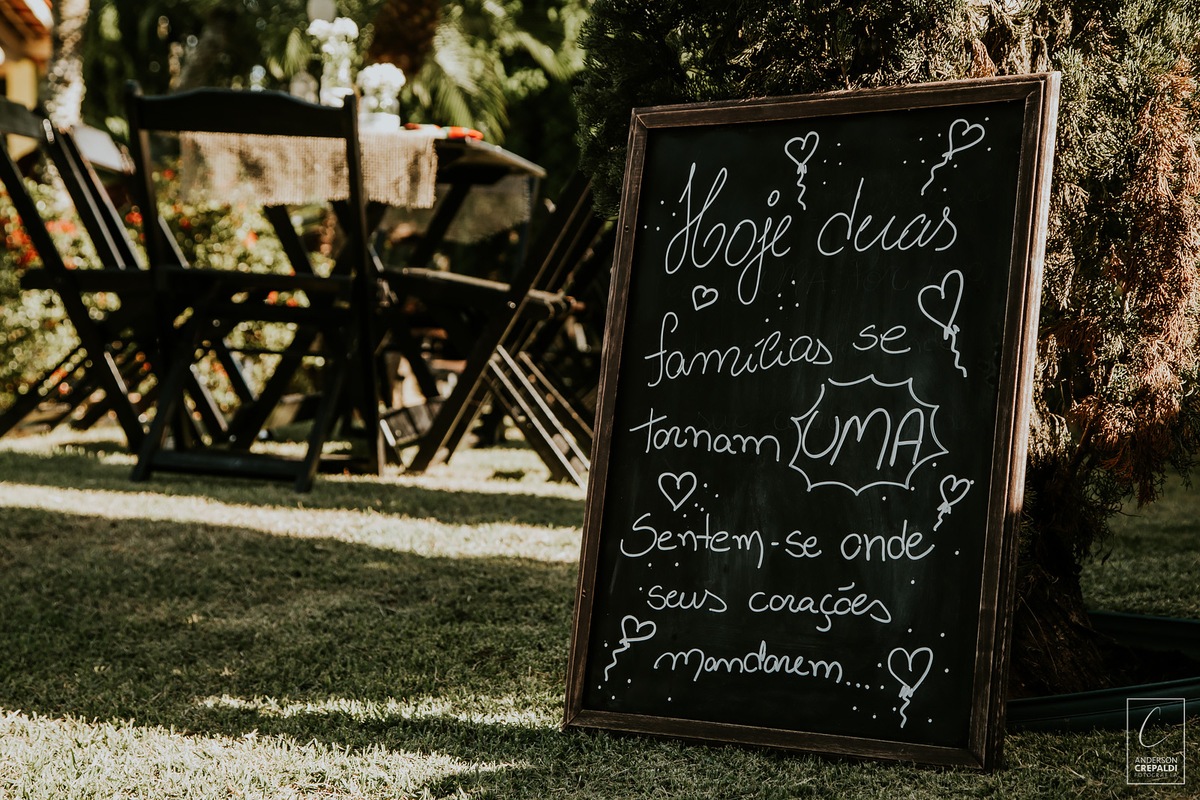 Hoje duas
famílias se
tornam UMA
Sentem-se onde
seus corações
mandarem...
C
ANDERSON
CREPALDI
FOTOGRAFIA